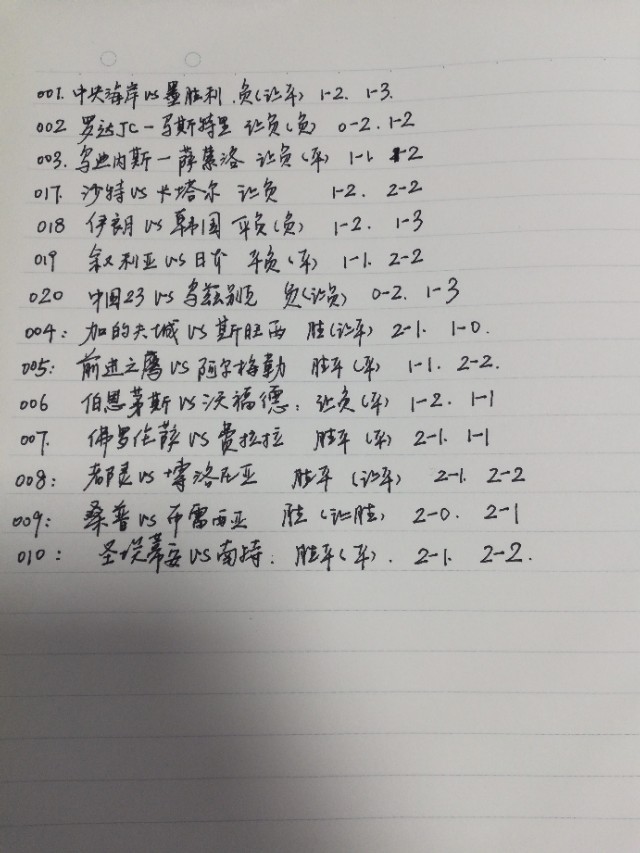 001. 中央海岸vs墨胜利 负(让平) 1-2. 1-3.
002 罗达JC-马斯特里 让负(负) 0-2. 1-2
003. 乌迪内斯-萨索洛 让负(平) 1-1. 1-2
017. 沙特vs卡塔尔 让负 1-2. 2-2
018 伊朗vs韩国 平负(负) 1-2. 1-3
019 叙利亚vs日本 平负(平) 1-1. 2-2
020 中国23vs乌兹别克 负(让负) 0-2. 1-3
004: 加的夫城vs斯旺西 胜(让平) 2-1. 1-0.
005: 前进之鹰vs阿尔梅勒 胜平(平) 1-1. 2-2.
006 伯恩茅斯vs沃福德: 让负(平) 1-2. 1-1
007. 佛罗伦萨vs费拉拉 胜平(平) 2-1. 1-1
008: 都灵vs博洛尼亚 胜平(让平) 2-1. 2-2
009: 桑普vs布雷西亚 胜(让胜) 2-0. 2-1
010: 圣埃蒂安vs南特: 胜平(平). 2-1. 2-2.